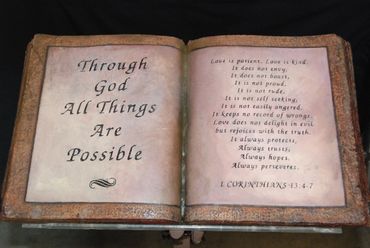 Through
God
All Things
Are
Possible
Love is patient. Love is kind.
It does not envy,
It does not boast,
It is not proud,
It is not rude,
It is not self seeking;
It is not easily angered,
It keeps no record of wrongs.
Love does not delight in evil
but rejoices with the truth.
It always protects,
Always trusts;
Always hopes.
Always perseveres.
1 CORINTHIANS 13:4-7